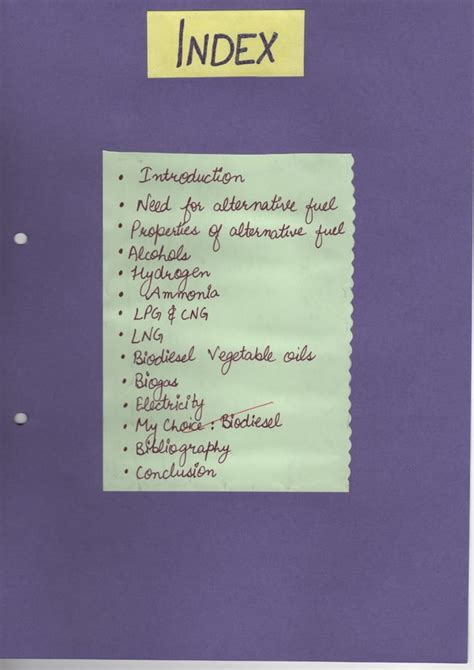 INDEX
• Introduction
• Need for alternative fuel
• Properties of alternative fuel
• Alcohols
• Hydrogen
• Ammonia
• LPG & CNG
• LNG
• Biodiesel Vegetable oils
• Biogas
• Electricity
• My Choice : Biodiesel
• Bibliography
• Conclusion